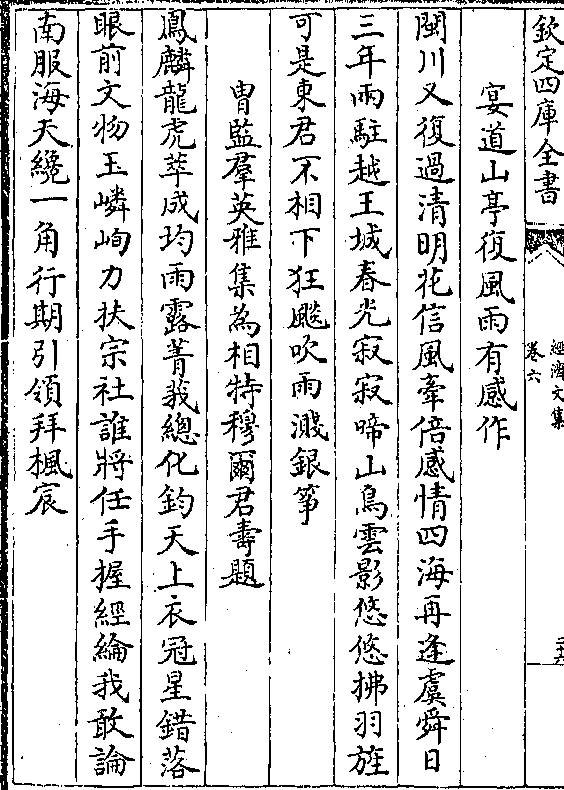 欽定四庫全書
經濟文集
卷六
二十六
宴道山亭復風雨有感作
閩川又復過清明花信風牽倍感情四海再逢虞舜日
三年兩駐越王城春光寂寂啼山鳥雲影悠悠拂羽旌
可是東君不相下狂飈吹雨濺銀箏
胄監羣英雅集為相特穆爾君壽題
鳳麟龍虎萃成均雨露菁莪總化鈞天上衣冠星錯落
眼前文物玉嶙峋力扶宗社誰將任手握經綸我敢論
南服海天纔一角行期引領拜楓宸